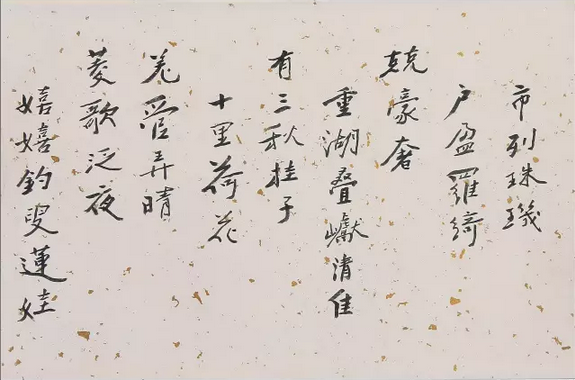 市列珠璣
户盈羅綺
競豪奢
重湖疊巘清佳
有三秋桂子
十里荷花
羌管弄晴
菱歌泛夜
嬉嬉釣叟蓮娃